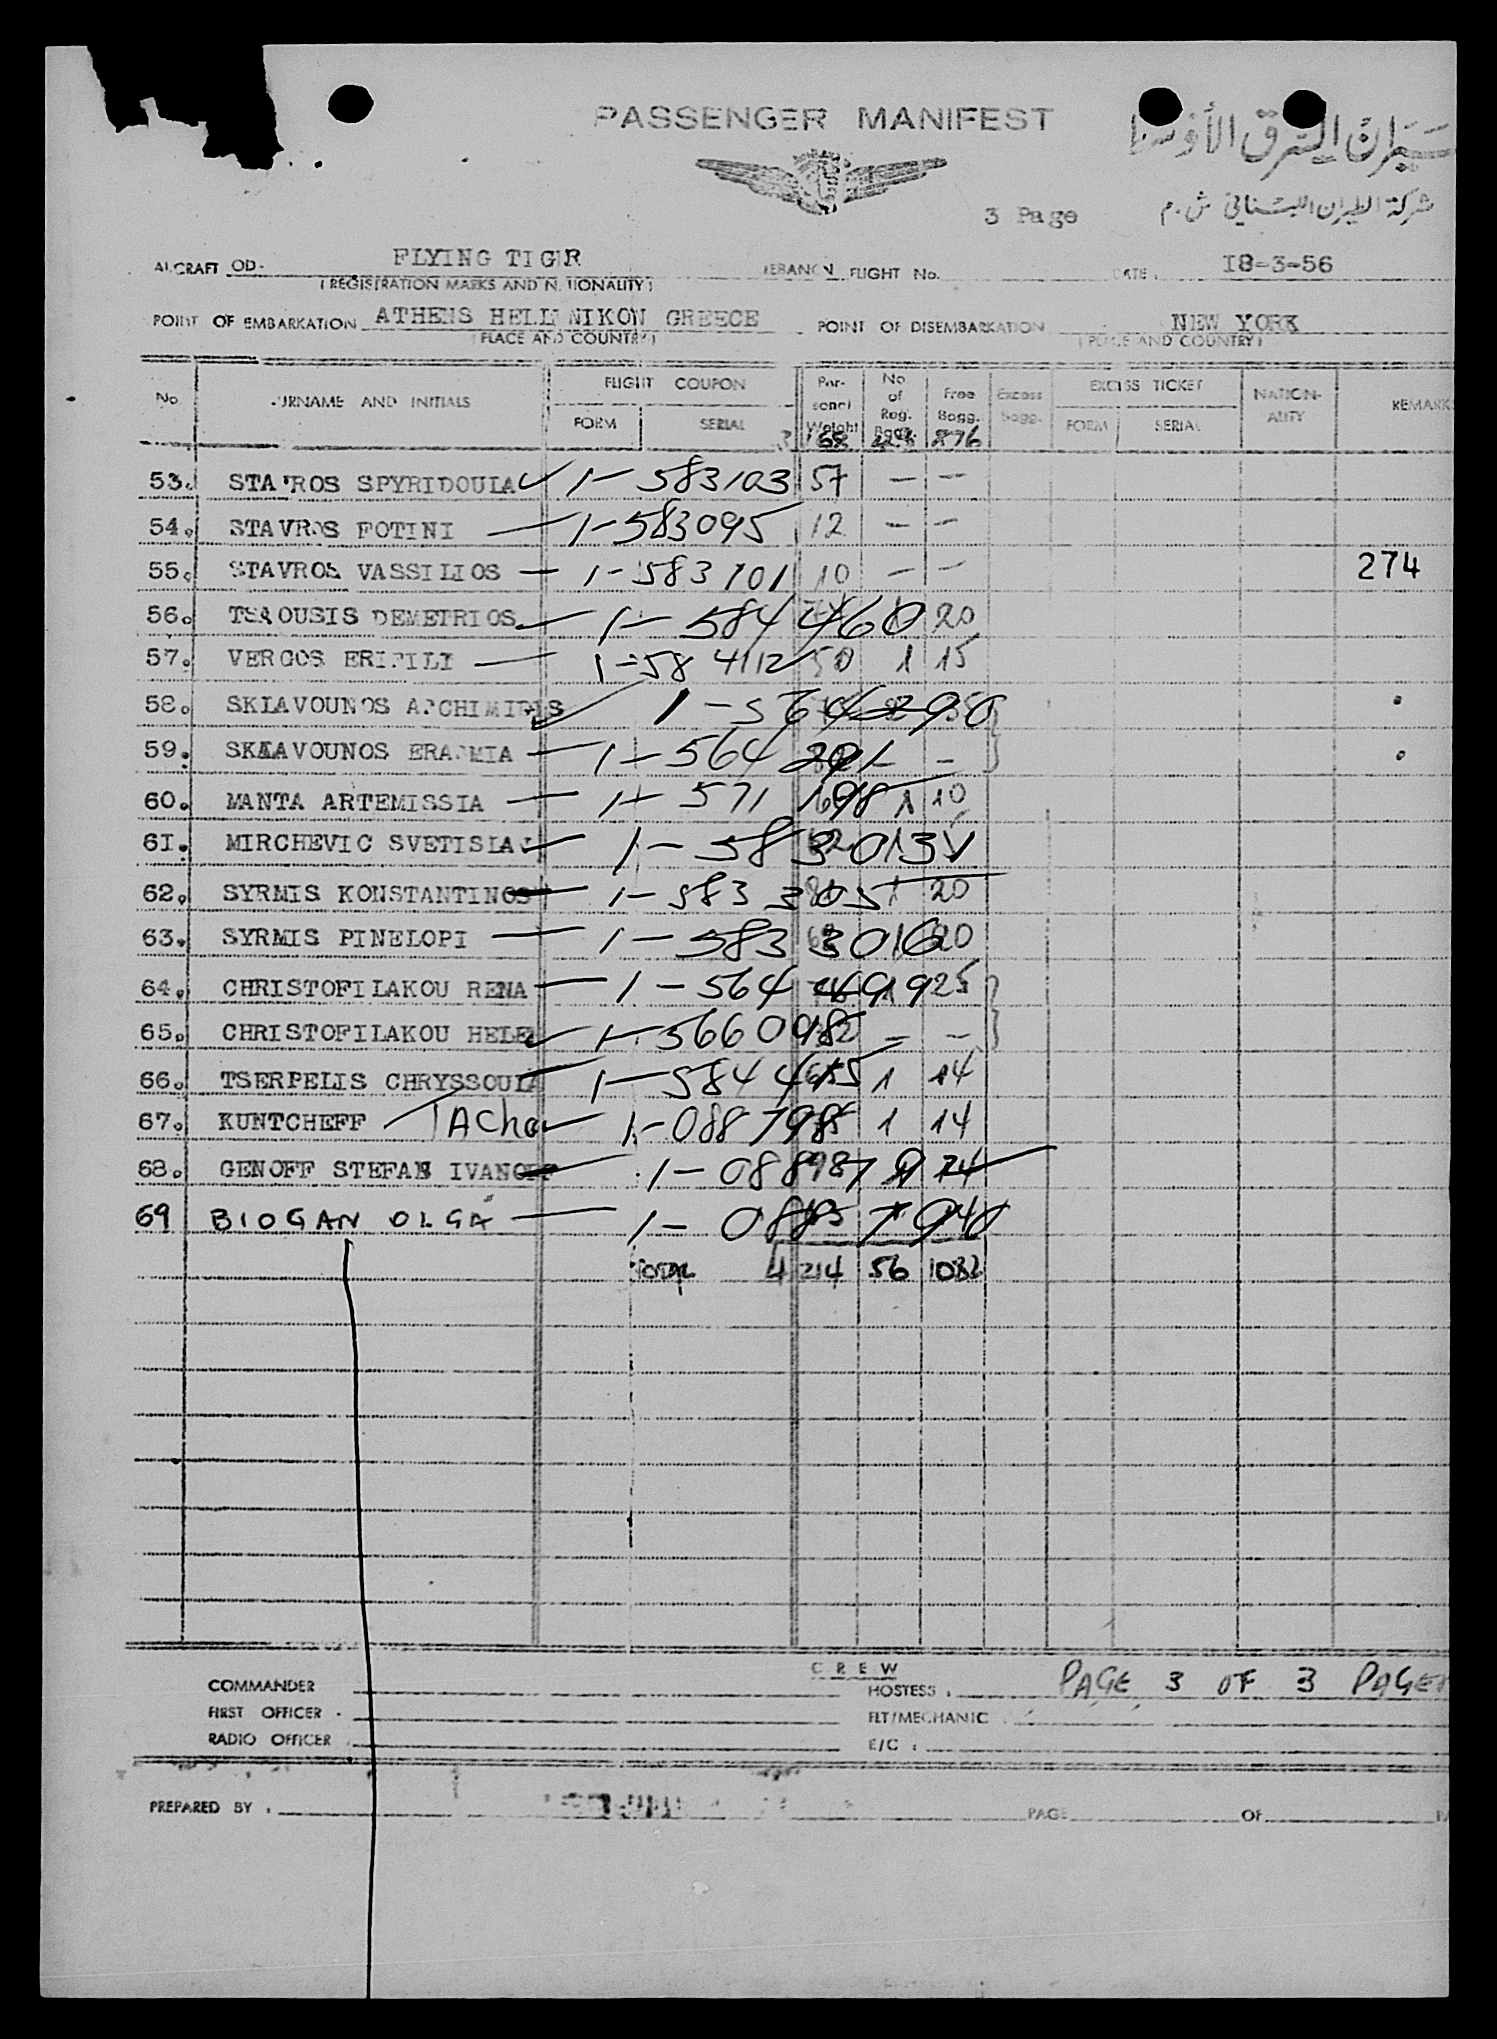 PASSENGER MANIFEST
طيران الشرق الأوسط
شركة الطيران اللبناني ش.م
3 Page
AIRCRAFT OD- FLYING TIGR LEBANON FLIGHT No. DATE: I8-3-56
(REGISTRATION MARKS AND NATIONALITY)
POINT OF EMBARKATION ATHENS HELLINIKON GREECE POINT OF DISEMBARKATION NEW YORK
(PLACE AND COUNTRY) (PLACE AND COUNTRY)
No. SURNAME AND INITIALS FLIGHT COUPON Personel Weight No of Reg. Bagg. Free Bagg. Excess Bagg. EXCESS TICKET NATIONALITY REMARKS
FORM SERIAL FORM SERIAL
876
53. STAVROS SPYRIDOULA 1- 583103 57 - -
54. STAVROS FOTINI 1-583095 12 - -
55. STAVROS VASSILIOS 1-583101 10 - - 274
56. TSAOUSIS DEMETRIOS 1- 584 460 20
57. VERGOS ERIFILI 1-58 4112 50 1 15
58. SKLAVOUNOS ARCHIMIDIS 1-564290
59. SKLAVOUNOS ERASMIA 1-564 291 - -
60. MANTA ARTEMISSIA 1- 571 198 1 10
6I. MIRCHEVIC SVETISLAV 1- 583013
62. SYRMIS KONSTANTINOS 1-583 305 20
63. SYRMIS PINELOPI 1- 583 3016 20
64. CHRISTOFILAKOU RENA 1-564 499 25
65. CHRISTOFILAKOU HELEN 1-566098 - -
66. TSERPELIS CHRYSSOULA 1-584 415 1 14
67. KUNTCHEFF TACho 1-088798 1 14
68. GENOFF STEFAN IVANOFF 1-088987 14
69 BIOGAN OLGA 1-
TOTAL 4 214 56 1032
CREW
COMMANDER HOSTESS: PAGE 3 OF 3 PAGES
FIRST OFFICER FLT/MECHANIC
RADIO OFFICER E/C:
PREPARED BY: PAGE OF